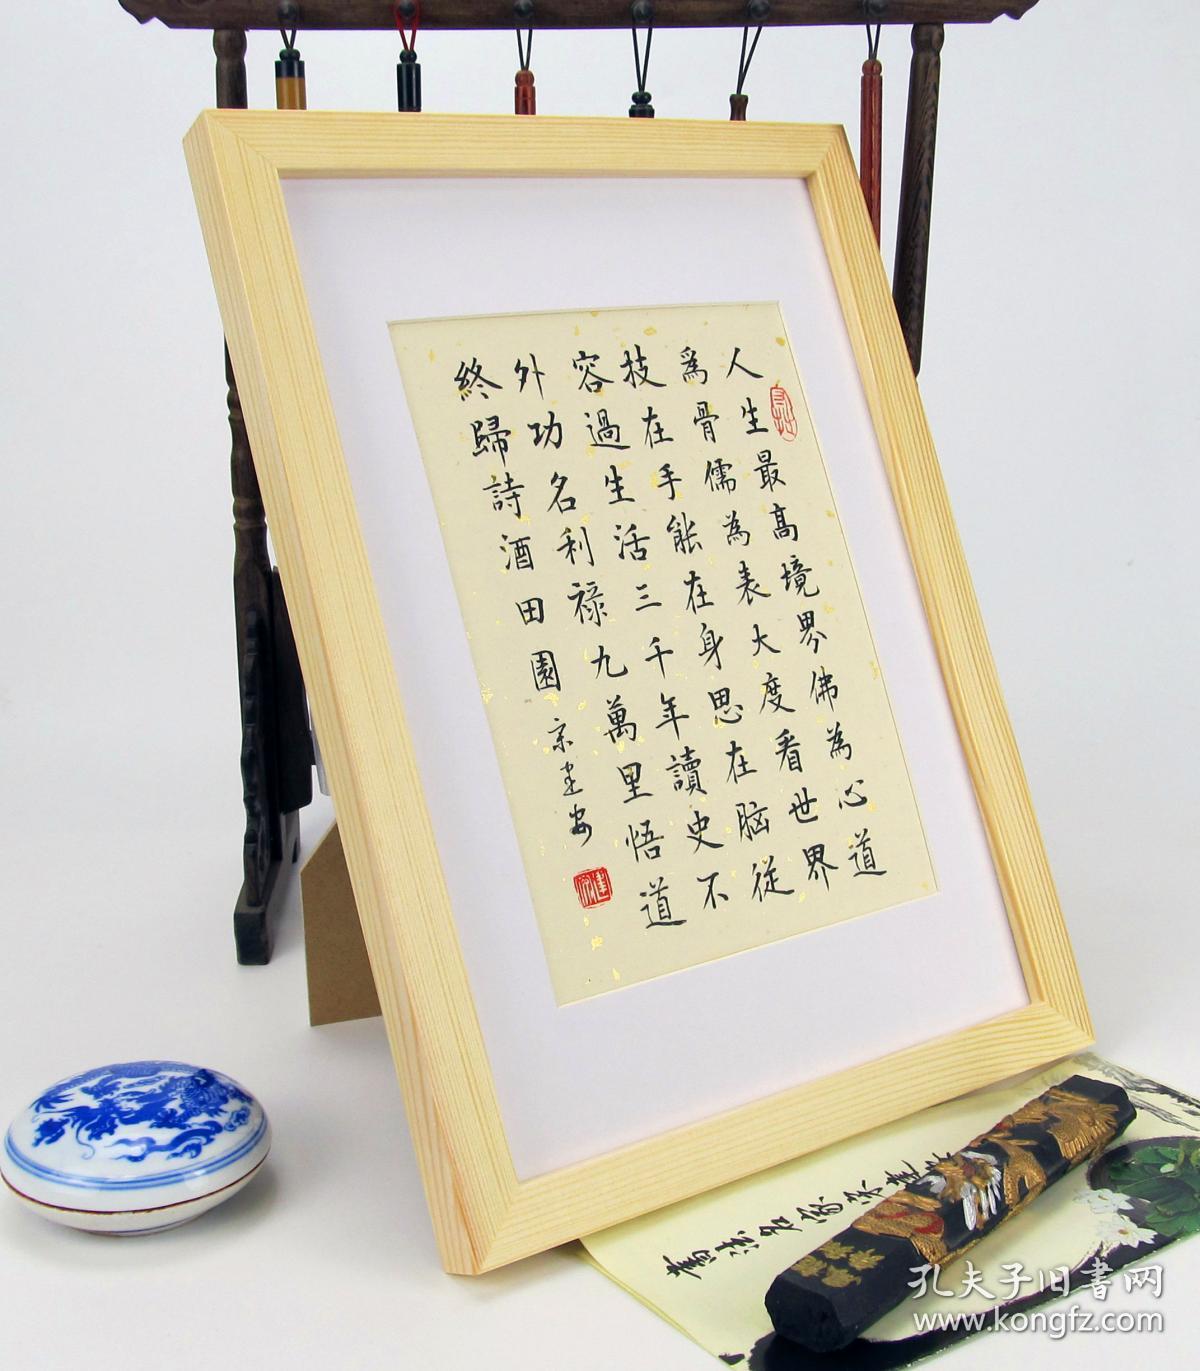 人生最高境界佛為心道
爲骨儒為表大度看世界
技在手能在身思在脑從
容過生活三千年讀史不
外功名利禄九萬里悟道
終歸詩酒田園
書法名家
孔夫子旧书网
www.kongfz.com